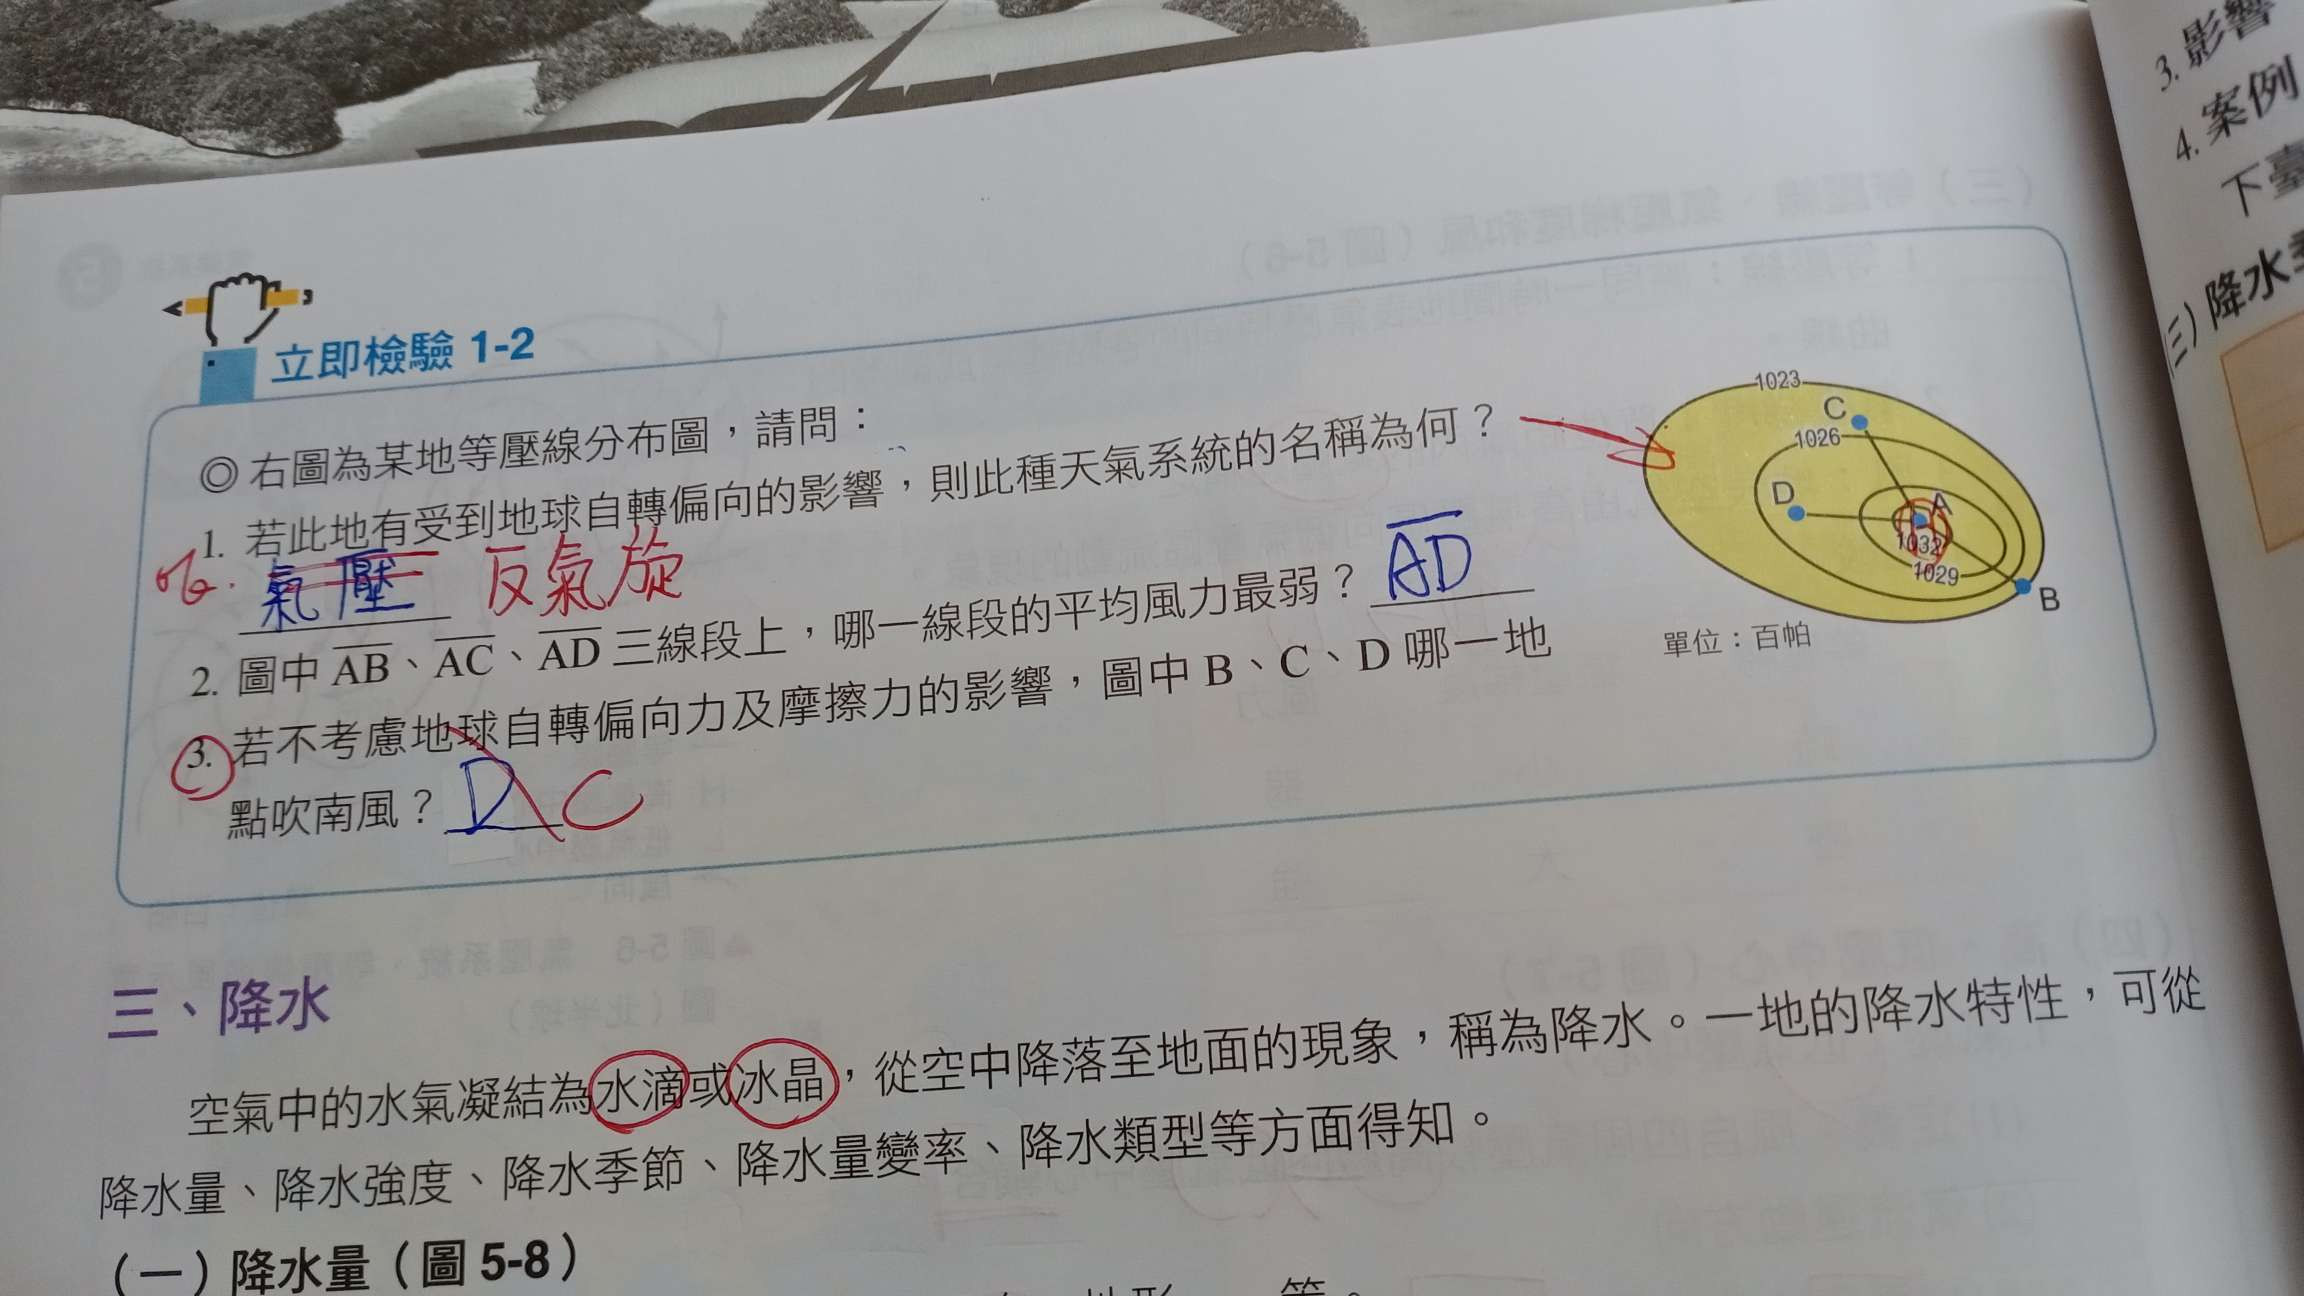 3. 影響
4. 案例
下臺
(三) 降水
立即檢驗 1-2
◎ 右圖為某地等壓線分布圖，請問：
1. 若此地有受到地球自轉偏向的影響，則此種天氣系統的名稱為何？
氣壓 反氣旋
2. 圖中 AB、AC、AD 三線段上，哪一線段的平均風力最弱？ AD
3. 若不考慮地球自轉偏向力及摩擦力的影響，圖中 B、C、D 哪一地
點吹南風？ D C
1023
C
1026
D
A
1032
1029
B
單位：百帕
三、降水
空氣中的水氣凝結為水滴或冰晶，從空中降落至地面的現象，稱為降水。一地的降水特性，可從
降水量、降水強度、降水季節、降水量變率、降水類型等方面得知。
(一) 降水量（圖 5-8）